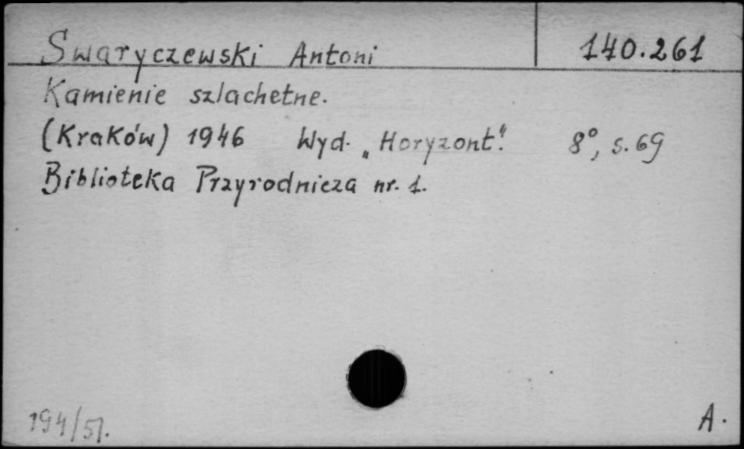 Swaryczewski Antoni 140.261
Kamienie szlachetne.
(Kraków) 1946 Wyd. „Horyzont". 8°, s. 69
Biblioteka Przyrodnicza nr. 1.
194/51. A.